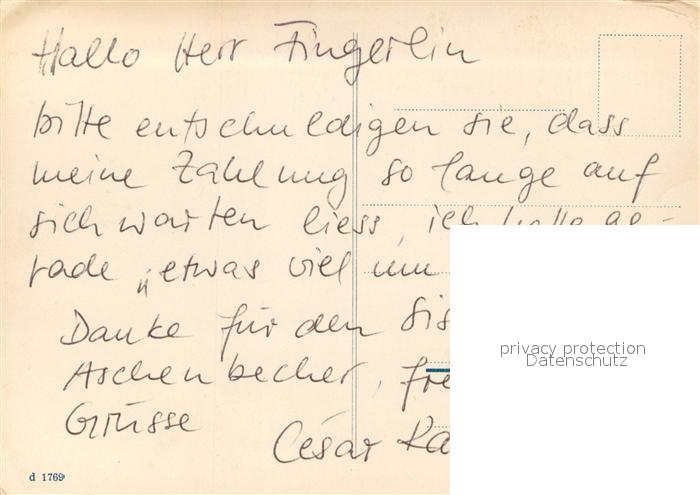 Hallo Herr Fingerlin
bitte entschuldigen sie, dass
meine Zahlung so lange auf
sich warten liess, ich hatte ge-
rade „etwas viel um
Danke für den
Aschenbecher,
Grüsse
César
privacy protection
Datenschutz
d 1769